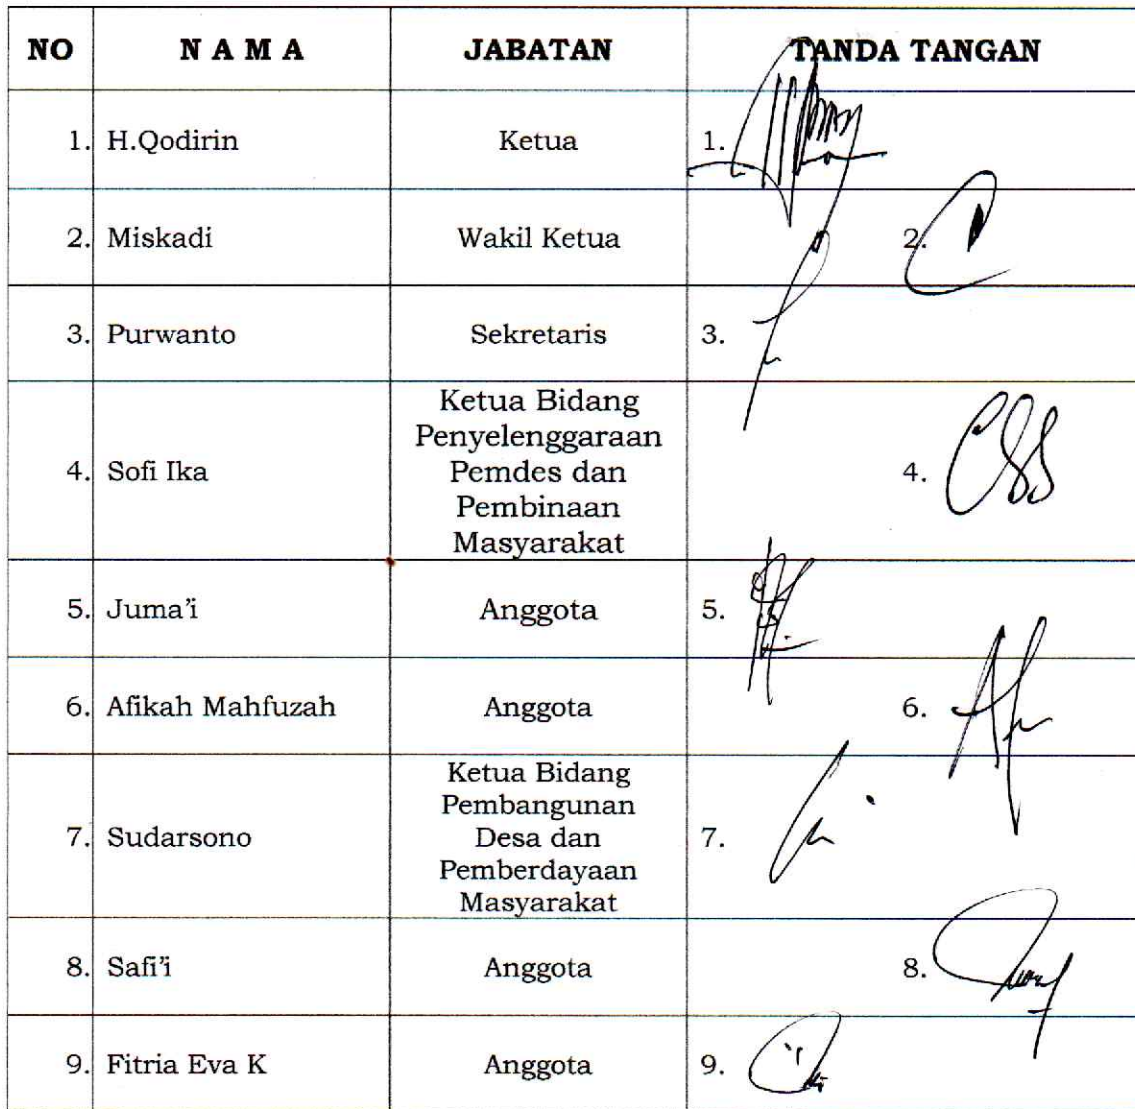 NO N A M A JABATAN TANDA TANGAN
1. H.Qodirin Ketua 1.
2. Miskadi Wakil Ketua 2.
3. Purwanto Sekretaris 3.
4. Sofi Ika Ketua Bidang
Penyelenggaraan
Pemdes dan
Pembinaan
Masyarakat 4.
5. Juma'i Anggota 5.
6. Afikah Mahfuzah Anggota 6.
7. Sudarsono Ketua Bidang
Pembangunan
Desa dan
Pemberdayaan
Masyarakat 7.
8. Safi'i Anggota 8.
9. Fitria Eva K Anggota 9.